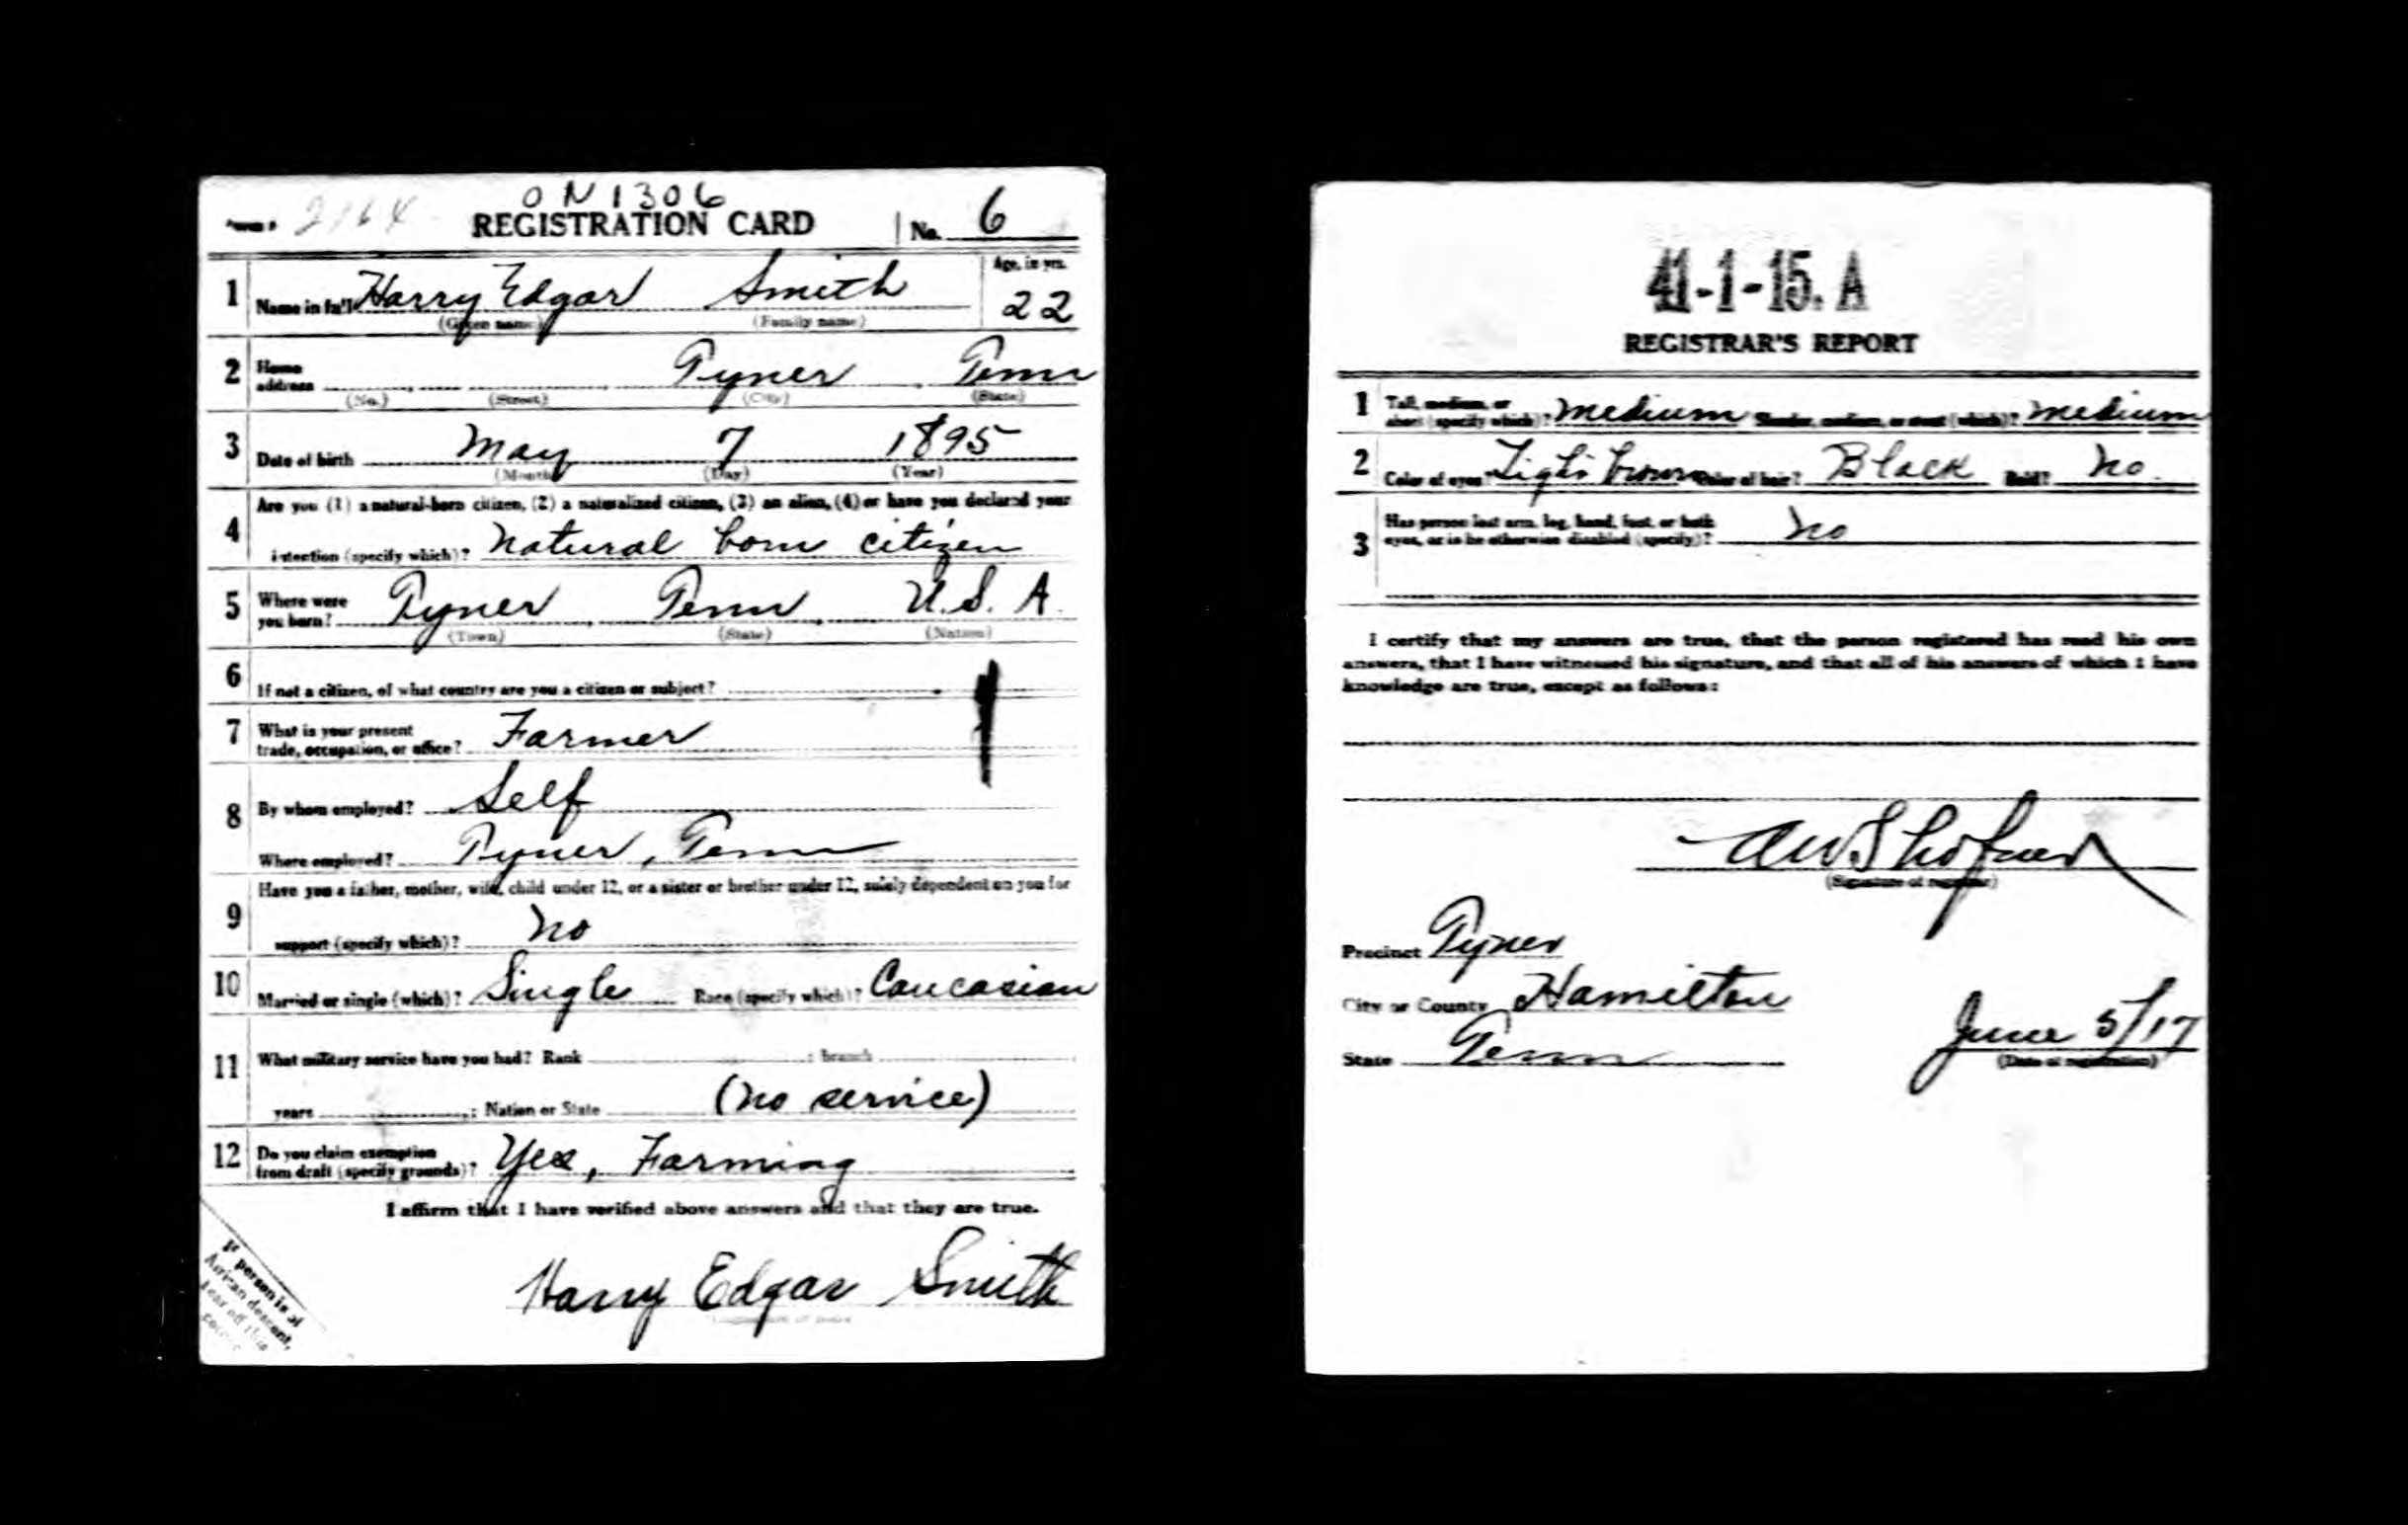 O N 1306
Form 1 2164 REGISTRATION CARD No. 6
1 Name in full Harry Edgar Smith Age, in yrs. 22
(Given name) (Family name)
2 Home address Tyner Tenn
(No.) (Street) (City) (State)
3 Date of birth May 7 1895
(Month) (Day) (Year)
4 Are you (1) a natural-born citizen, (2) a naturalized citizen, (3) an alien, (4) or have you declared your
intention (specify which)? Natural born citizen
5 Where were you born? Tyner Tenn U.S.A.
(Town) (State) (Nation)
6 If not a citizen, of what country are you a citizen or subject?
7 What is your present trade, occupation, or office? Farmer
8 By whom employed? Self
Where employed? Tyner, Tenn
9 Have you a father, mother, wife, child under 12, or a sister or brother under 12, solely dependent on you for
support (specify which)? No
10 Married or single (which)? Single Race (specify which)? Caucasian
11 What military service have you had? Rank ; branch
years ; Nation or State (No service)
12 Do you claim exemption from draft (specify grounds)? Yes, Farming
I affirm that I have verified above answers and that they are true.
Harry Edgar Smith
If person is of
African descent,
tear off this
corner
41-1-15. A
REGISTRAR'S REPORT
1 Tall, medium, or short (specify which)? Medium Slender, medium, or stout (which)? Medium
2 Color of eyes? Light brown Color of hair? Black Bald? No.
3 Has person lost arm, leg, hand, foot, or both eyes, or is he otherwise disabled (specify)? No
I certify that my answers are true, that the person registered has read his own
answers, that I have witnessed his signature, and that all of his answers of which I have
knowledge are true, except as follows:
A W Shofner
(Signature of registrar)
Precinct Tyner
City or County Hamilton
State Tenn June 5/17
(Date of registration)